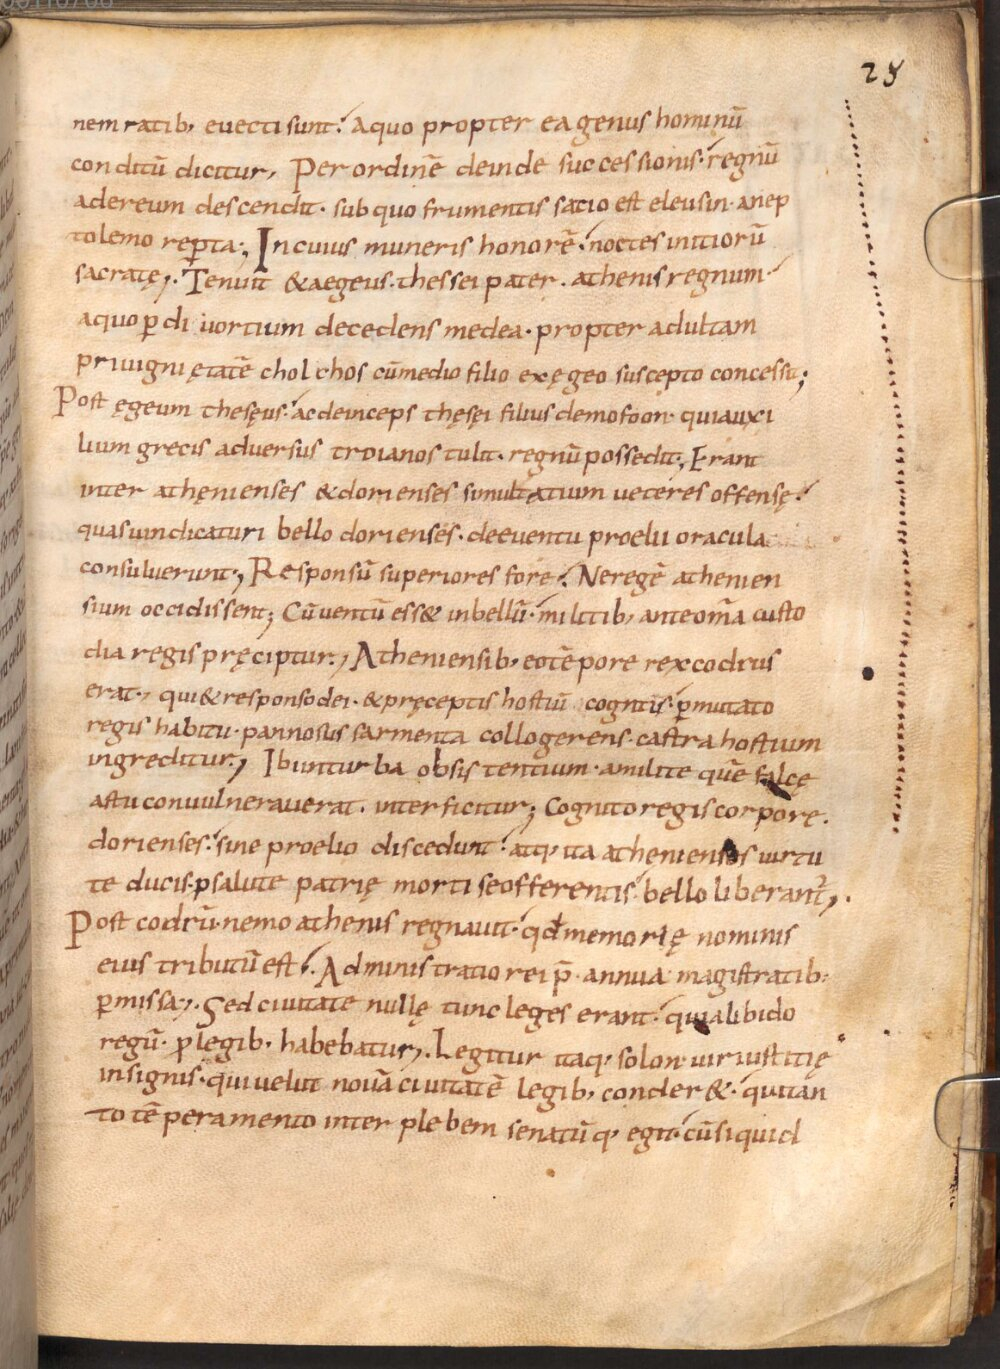 28
nem ratib; euecti sunt. A quo propter ea genus hominū
conditū dicitur, Per ordinē deinde successionis regnū
ad ereum descendit. sub quo frumentis satio est eleusin. a nep
tolemo rep̄ta; In cuius muneris honorē. noctes initiorū
sacratę;. Tenuit & aegeus. thessei pater. athenis regnum
a quo p̄ diuortium decedens medea. propter adultam
priuigni ętatē cholchos cū medio filio ex ęgeo suscepto concessit;
Post ęgeum thesęus. ac deinceps thęsęi filius demofoon. qui auxi
lium grecis aduersus troianos tulit. regnū possedit; Erant
inter athęnienses & dorienses simultatium ueteres offensę.
quas uindicaturi bello dorienses. de euentu proelii oracula
consuluerunt; Responsū superiores fore. Ne regē athenien
sium occidissent; Cū uentū ess& in bellū. militib; ante om̄a custo
dia regis pręcipitur; Atheniensib; eo tēpore rex codrus
erat; qui & responso dei. & pręceptis hostiū cognitis. p̄mutato
regis habitu. pannosus sarmenta collo gerens. castra hostium
ingreditur; Ibi in turba obsistentium. a milite quē falcę
astu conuulnerauerat. interficitur; Cognito regis corporę.
dorienses. sine proelio discedunt. atq; ita athenienses uirtu
te ducis. p salute patrię morti se offerentis. bello liberant²;.
Post codrū. nemo athenis regnauit. qd̄ memorię nominis
eius tributū est;. Administratio rei p̄. annua magistratib;
p̄missa;. Sed ciuitate nullę tunc leges erant. quia libido
regū. p legib; habebatur;. Legitur itaq; solon. uir iustitię
insignis. qui uelut nouā ciuitatē legib; conder&. qui tan
to tēperamento inter plebem senatūq; egit. cū si quid